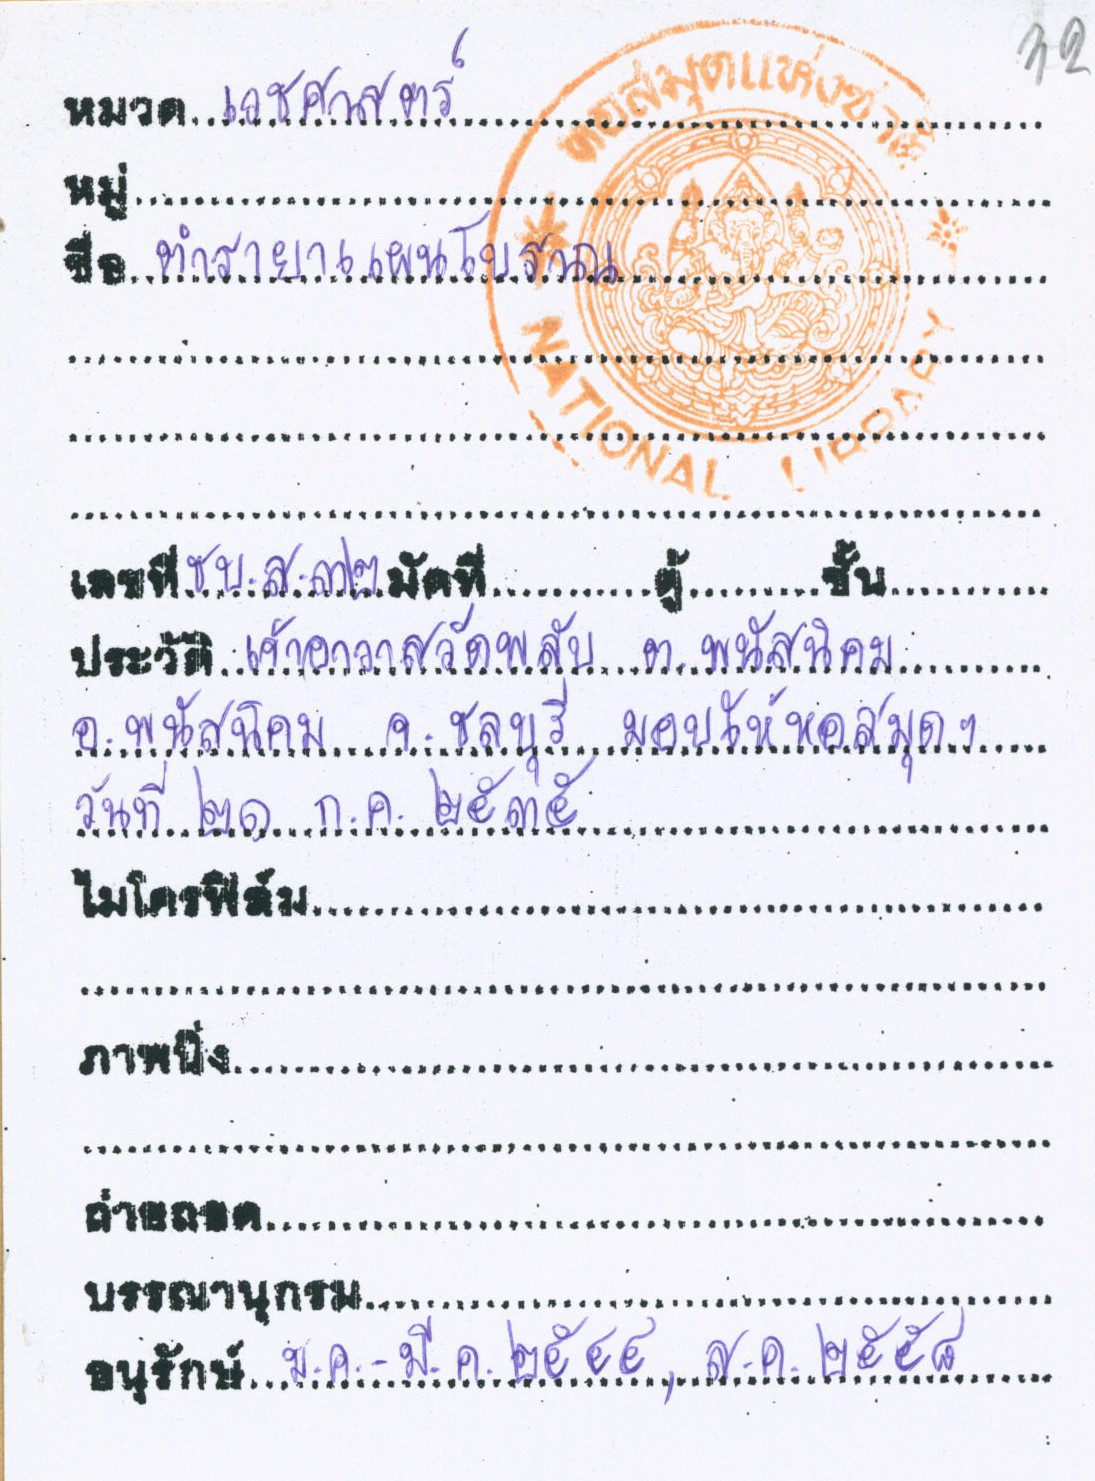 32
หอสมุดแห่งชาติ
NATIONAL LIBRARY
หมวด เวชศาสตร์
หมู่
ชื่อ ตำรายาแผนโบราณ
เลขที่ ชบ.ส.๓๒ มัดที่ ตู้ ชั้น
ประวัติ เจ้าอาวาสวัดพลับ ต.พนัสนิคม
อ.พนัสนิคม จ.ชลบุรี มอบให้หอสมุดฯ
วันที่ ๒๑ ก.ค. ๒๕๓๕
ไมโครฟิล์ม
ภาพนิ่ง
ถ่ายถอด
บรรณานุกรม
อนุรักษ์ ม.ค.-มี.ค. ๒๕๔๔, ส.ค. ๒๕๕๘